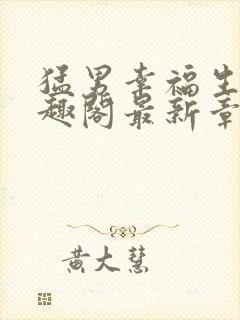 猛男幸福生
趣阁最新章
黄大慧